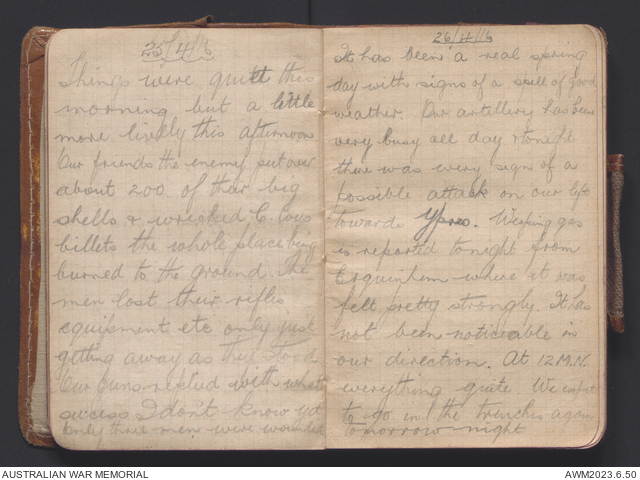 25/4/16
Things were quiett this
morning but a little
more lively this afternoon
Our friends the enemy put over
about 200 of thar big
shells & wrecked C. Coys
billets the whole place being
burned to the ground. The
men lost their rifles
equipment etc only just
getting away as they stood
Our Guns replied with what
success I don't know yet
Only three men were wounded
26/4/16
It has been a real spring
day with signs of a spell of good
weather. Our artillery has been
very busy all day & tonight
there was every signs of a
possible attack on our left
towards Ypres. Weeping gas
is reported tonight from
Erquinhem where it was
felt pretty strongly. It has
not been noticeable in
our direction. At 12 M.N.
everything quite We expect
to go in the trenches again
tomorrow night
AUSTRALIAN WAR MEMORIAL
AWM2023.6.50